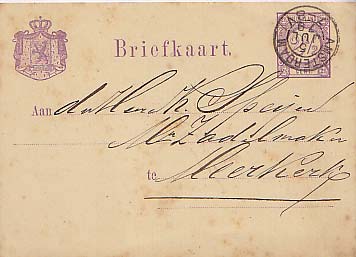 Briefkaart.
AMSTERDAM
Aan den Heer K. Speijer
Mr Zadelmaker
te Meerkerk